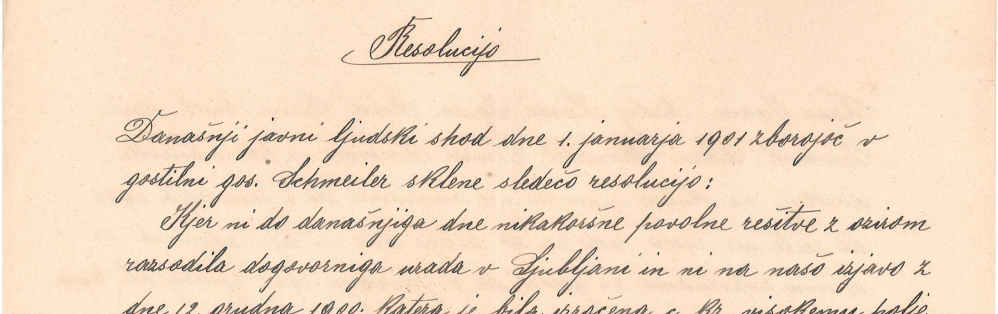 Resolucijo
Današnji javni ljudski shod dne 1. januarja 1901 zborojoč v
gostilni gos. Schmeiler sklene sledečo resolucijo:
Kjer ni do današnjiga dne nikakoršne povolne rešitve z ozirom
razsodila dogovorniga urada v Ljubljani in ni na našo izjavo z
dne 12. grudna 1900. katera je bila izročena c. kr. visokemu polje